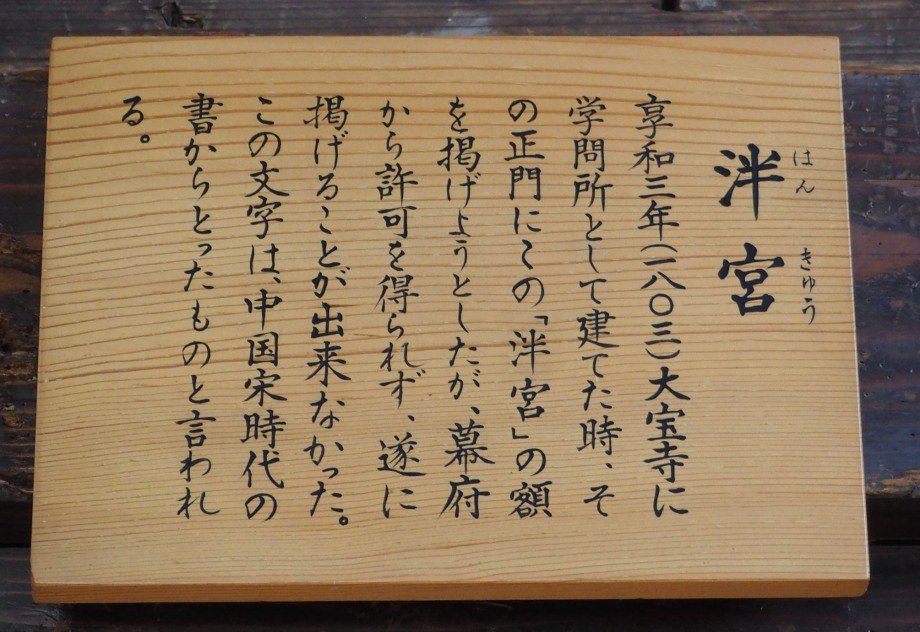 泮宮
はん きゅう
享和三年(一八〇三)大宝寺に
学問所として建てた時、そ
の正門にこの「泮宮」の額
を掲げようとしたが、幕府
から許可を得られず、遂に
掲げることが出来なかった。
この文字は、中国宋時代の
書からとったものと言われ
る。